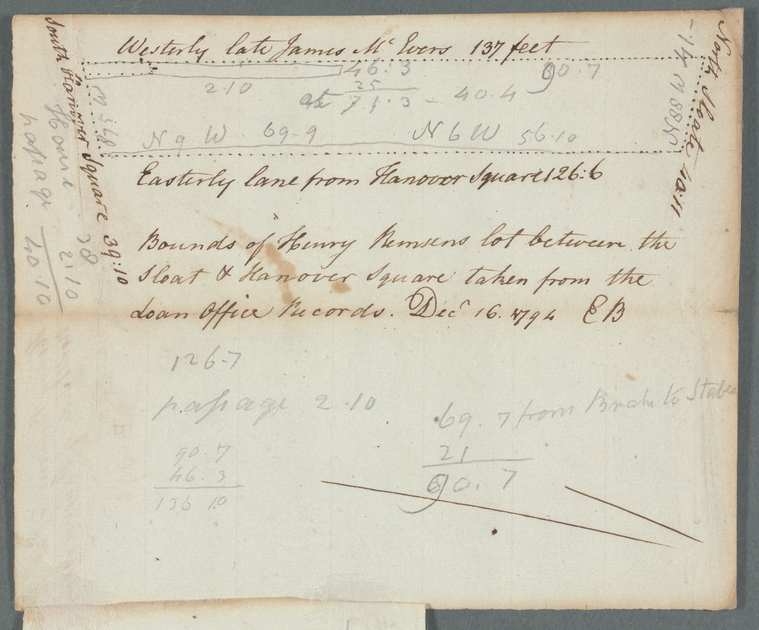 Westerly late James Mc Evers 137 feet
46.3 90.7
2.10 25
at 71.3 - 40.4
N 9 W 69-9 N 6 W 56.10
Easterly lane from Hanover Square 126:6
Bounds of Henry Remsens lot between the
Sloat & Hanover Square taken from the
Loan Office Records. Decr 16. 1794 EB
126-7
passage 2.10
90.7
46.3
136 10
69.7 from to
21
90.7
South Hanover Square 39:10
House 38
passage 2.10
40.10
North Sloat 40:11
N 88 W